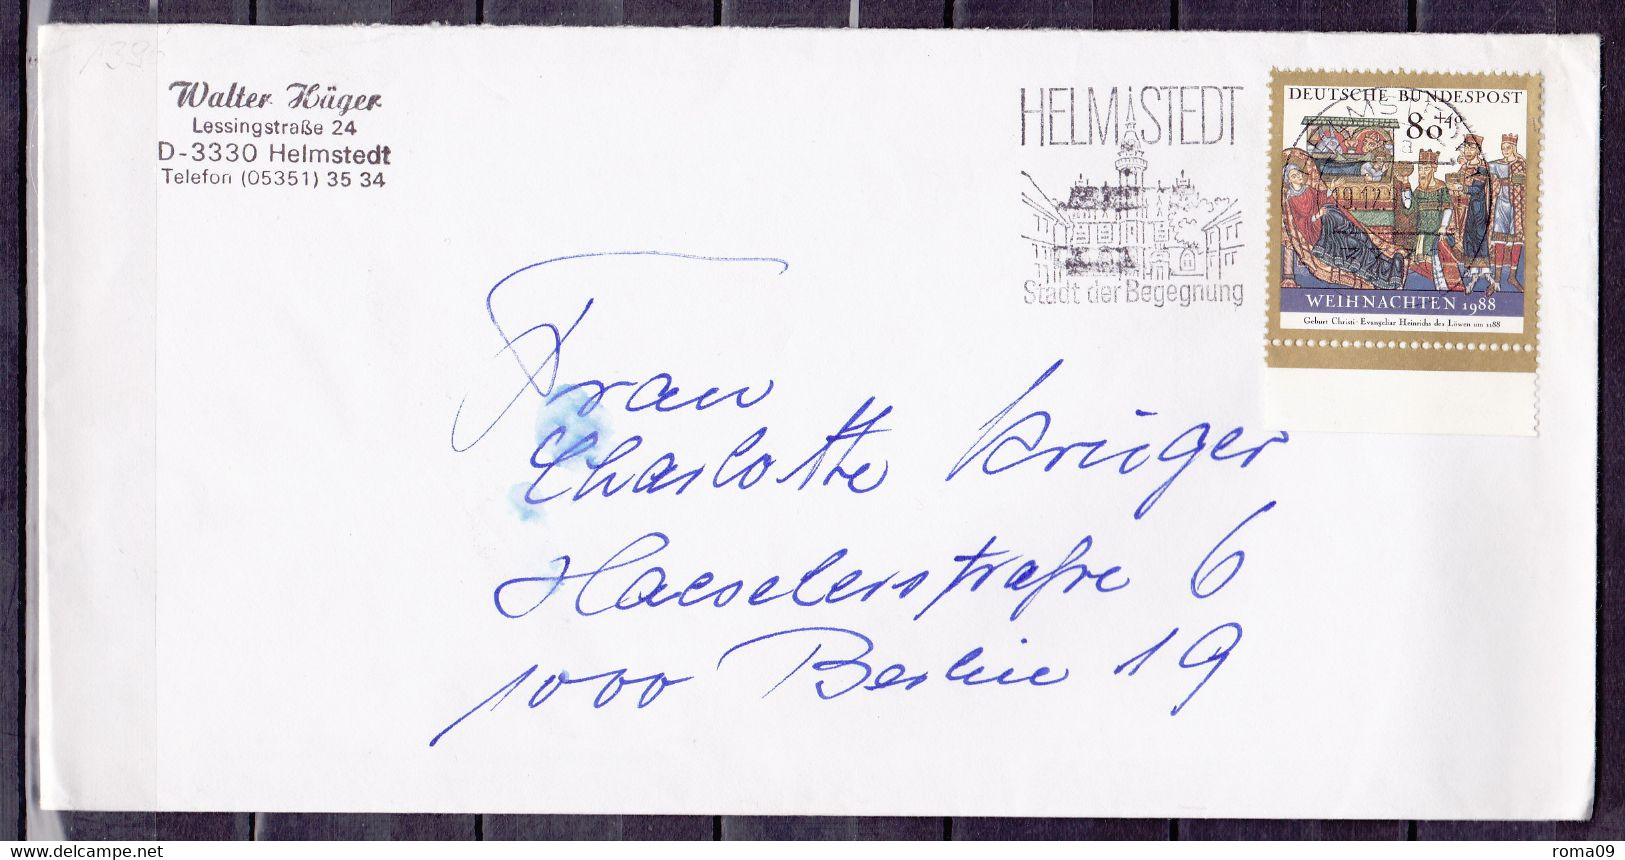 Walter Häger
Lessingstraße 24
D-3330 Helmstedt
Telefon (05351) 35 34
HELMSTEDT
Stadt der Begegnung
DEUTSCHE BUNDESPOST
80+40
WEIHNACHTEN 1988
Geburt Christi · Evangeliar Heinrichs des Löwen um 1188
Frau
Charlotte Krüger
Haeselerstraße 6
1000 Berlin 19
delcampe.net
roma09